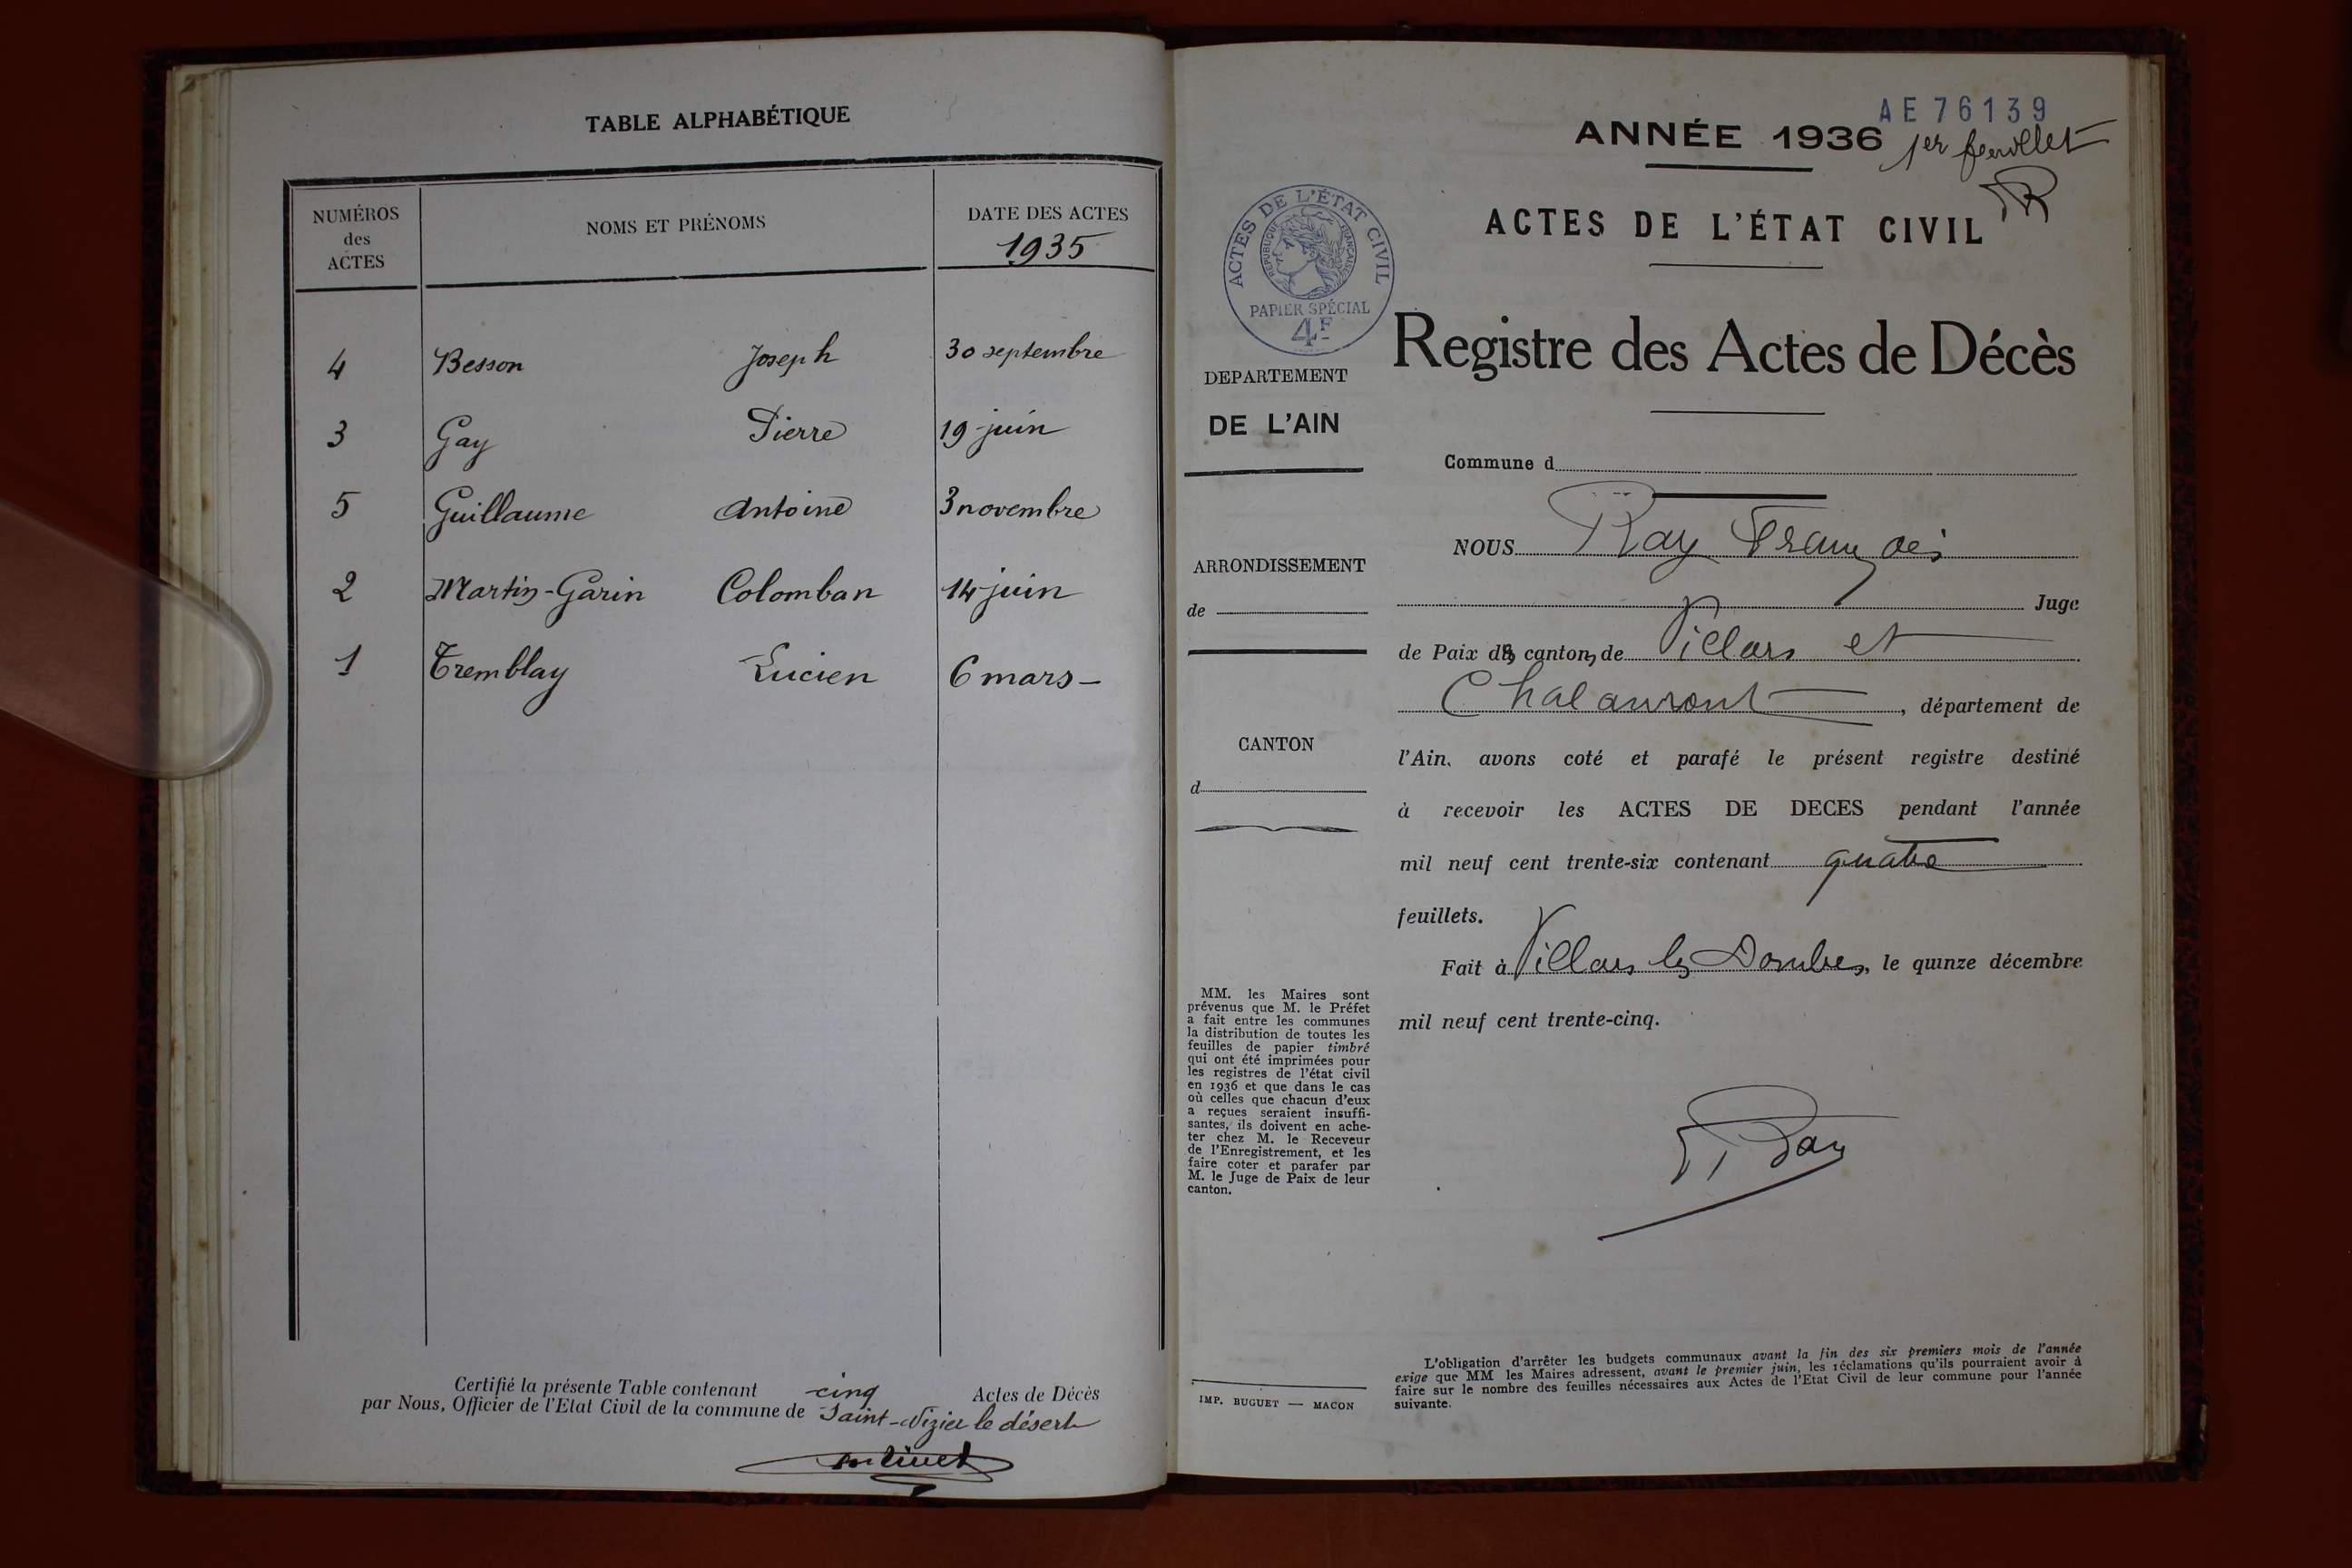 TABLE ALPHABÉTIQUE
NUMÉROS des ACTES NOMS ET PRÉNOMS DATE DES ACTES
1935
4 Besson Joseph 30 septembre
3 Gay Pierre 19 juin
5 Guillaume Antoine 3 novembre
2 Martin-Garin Colomban 14 juin
1 Tremblay Lucien 6 mars -
Certifié la présente Table contenant cinq Actes de Décès
par Nous, Officier de l'Etat Civil de la commune de Saint-Nizier le désert
AE 76139
ANNÉE 1936
1er feuillet
ACTES DE L'ÉTAT CIVIL
ACTES DE L'ÉTAT CIVIL
RÉPUBLIQUE FRANÇAISE
PAPIER SPÉCIAL
4F
Registre des Actes de Décès
DEPARTEMENT
DE L'AIN
ARRONDISSEMENT
de
CANTON
d
MM. les Maires sont
prévenus que M. le Préfet
a fait entre les communes
la distribution de toutes les
feuilles de papier timbré
qui ont été imprimées pour
les registres de l'état civil
en 1936 et que dans le cas
où celles que chacun d'eux
a reçues seraient insuffi-
santes, ils doivent en ache-
ter chez M. le Receveur
de l'Enregistrement, et les
faire coter et parafer par
M. le Juge de Paix de leur
canton.
IMP. BUGUET — MACON
Commune d
NOUS Ray François
Juge
de Paix des cantons de Villars et
Chalamont, département de
l'Ain, avons coté et parafé le présent registre destiné
à recevoir les ACTES DE DECES pendant l'année
mil neuf cent trente-six contenant quatre
feuillets.
Fait à Villars les Dombes, le quinze décembre
mil neuf cent trente-cinq.
F Ray
L'obligation d'arrêter les budgets communaux avant la fin des six premiers mois de l'année
exige que MM les Maires adressent, avant le premier juin, les réclamations qu'ils pourraient avoir à
faire sur le nombre des feuilles nécessaires aux Actes de l'Etat Civil de leur commune pour l'année
suivante.